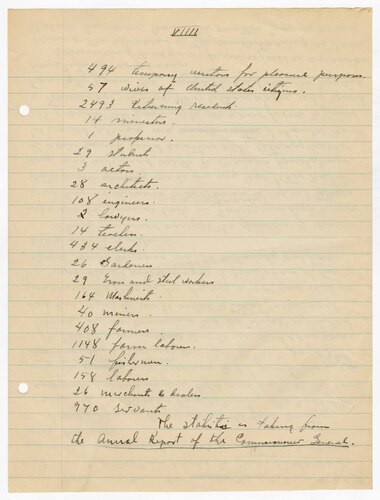 VIIII
494 temporary visitors for pleasure purposes.
57 wives of United States citizens.
2493 Returning residents
14 ministers.
1 professor.
29 students
3 actors
28 architects.
108 engineers.
2 lawyers.
14 teachers.
434 clerks.
26 Gardeners
29 Iron and steel workers
164 Machinists
40 miners.
408 farmers.
1148 farm laborers.
51 fishermen.
158 laborers
26 merchants & dealers
970 servants
The statistic is taking from
the Annual Report of the Commissioner General.